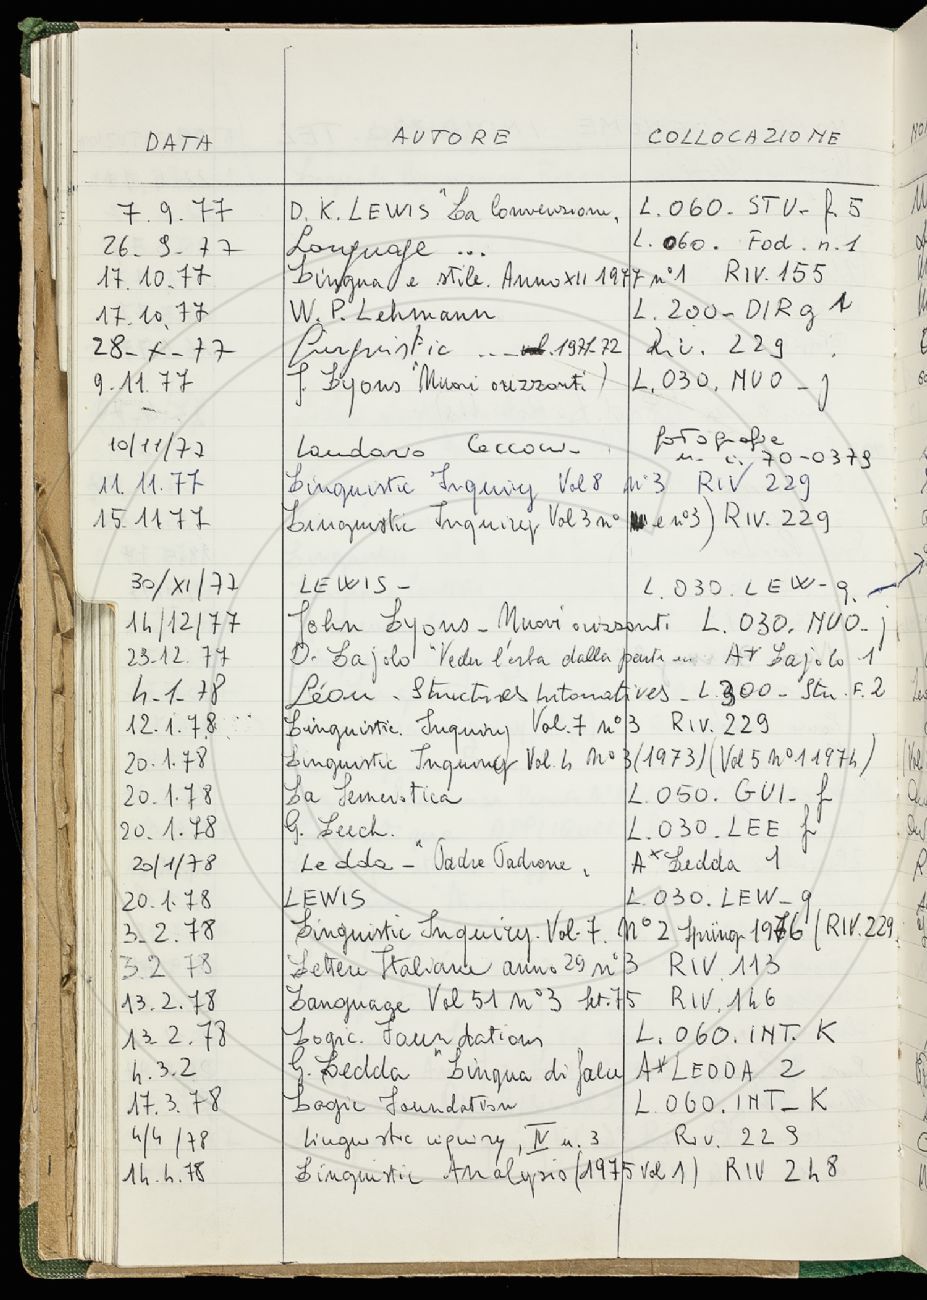 DATA AUTORE COLLOCAZIONE
7.9.77 D. K. LEWIS "La Convenzione, L.060. STU- f. 5
26.9.77 Language ... L.060. Fod. n.1
17.10.77 Lingua e stile. Anno XII 1977 n°1 RIV. 155
17.10.77 W. P. Lehmann L. 200- DIR g 1
28-X-77 Linguistic ... 1971-72 Riv. 229
9.11.77 J. Lyons "Nuovi orizzonti) L.030. NUO - j
10/11/77 Laudario fotografie
70-0379
11.11.77 Linguistic Inquiry Vol 8 n°3 RIV 229
15.11 77 Linguistic Inquiry Vol 3 n° e n°3) RIV. 229
30/XI/77 LEWIS - L.030. LEW-g.
14/12/77 John Lyons - Nuovi orizzonti L. 030. NUO- j
23.12.77 D. Lajolo "Veder l'erba dalla parte A* Lajolo 1
4-1-78 Léon - Structures - L.300- Stu. F. 2
12.1.78 Linguistic. Inquiry Vol.7 n°3 RIV. 229
20.1.78 Linguistic Inquiry Vol. 4 N°3 (1973) (Vol 5 N°1 1974)
20.1.78 La Semiotica L.050. GUI- f
20.1.78 G. Leech. L.030. LEE f
20/1/78 Ledda - "Padre Padrone, A* Ledda 1
20.1.78 LEWIS L.030. LEW- g
3-2.78 Linguistic Inquiry. Vol-7. N°2 Spring 1976 (RIV.229
3.2 78 Lettere Italiane anno 29 n°3 RIV 113
13.2.78 Language Vol 51 N°3 Set.75 RIV.146
13.2.78 Logic. Foundations L.060.INT. K
4.3.2 G. Ledda "Lingua di falce A* LEDDA 2
17.3.78 Logic Foundation L.060.INT- K
4/4/78 linguistic iquiry, IV n. 3 Riv. 229
14.4.78 Linguistic Analysis (1975 vol 1) RIV 248